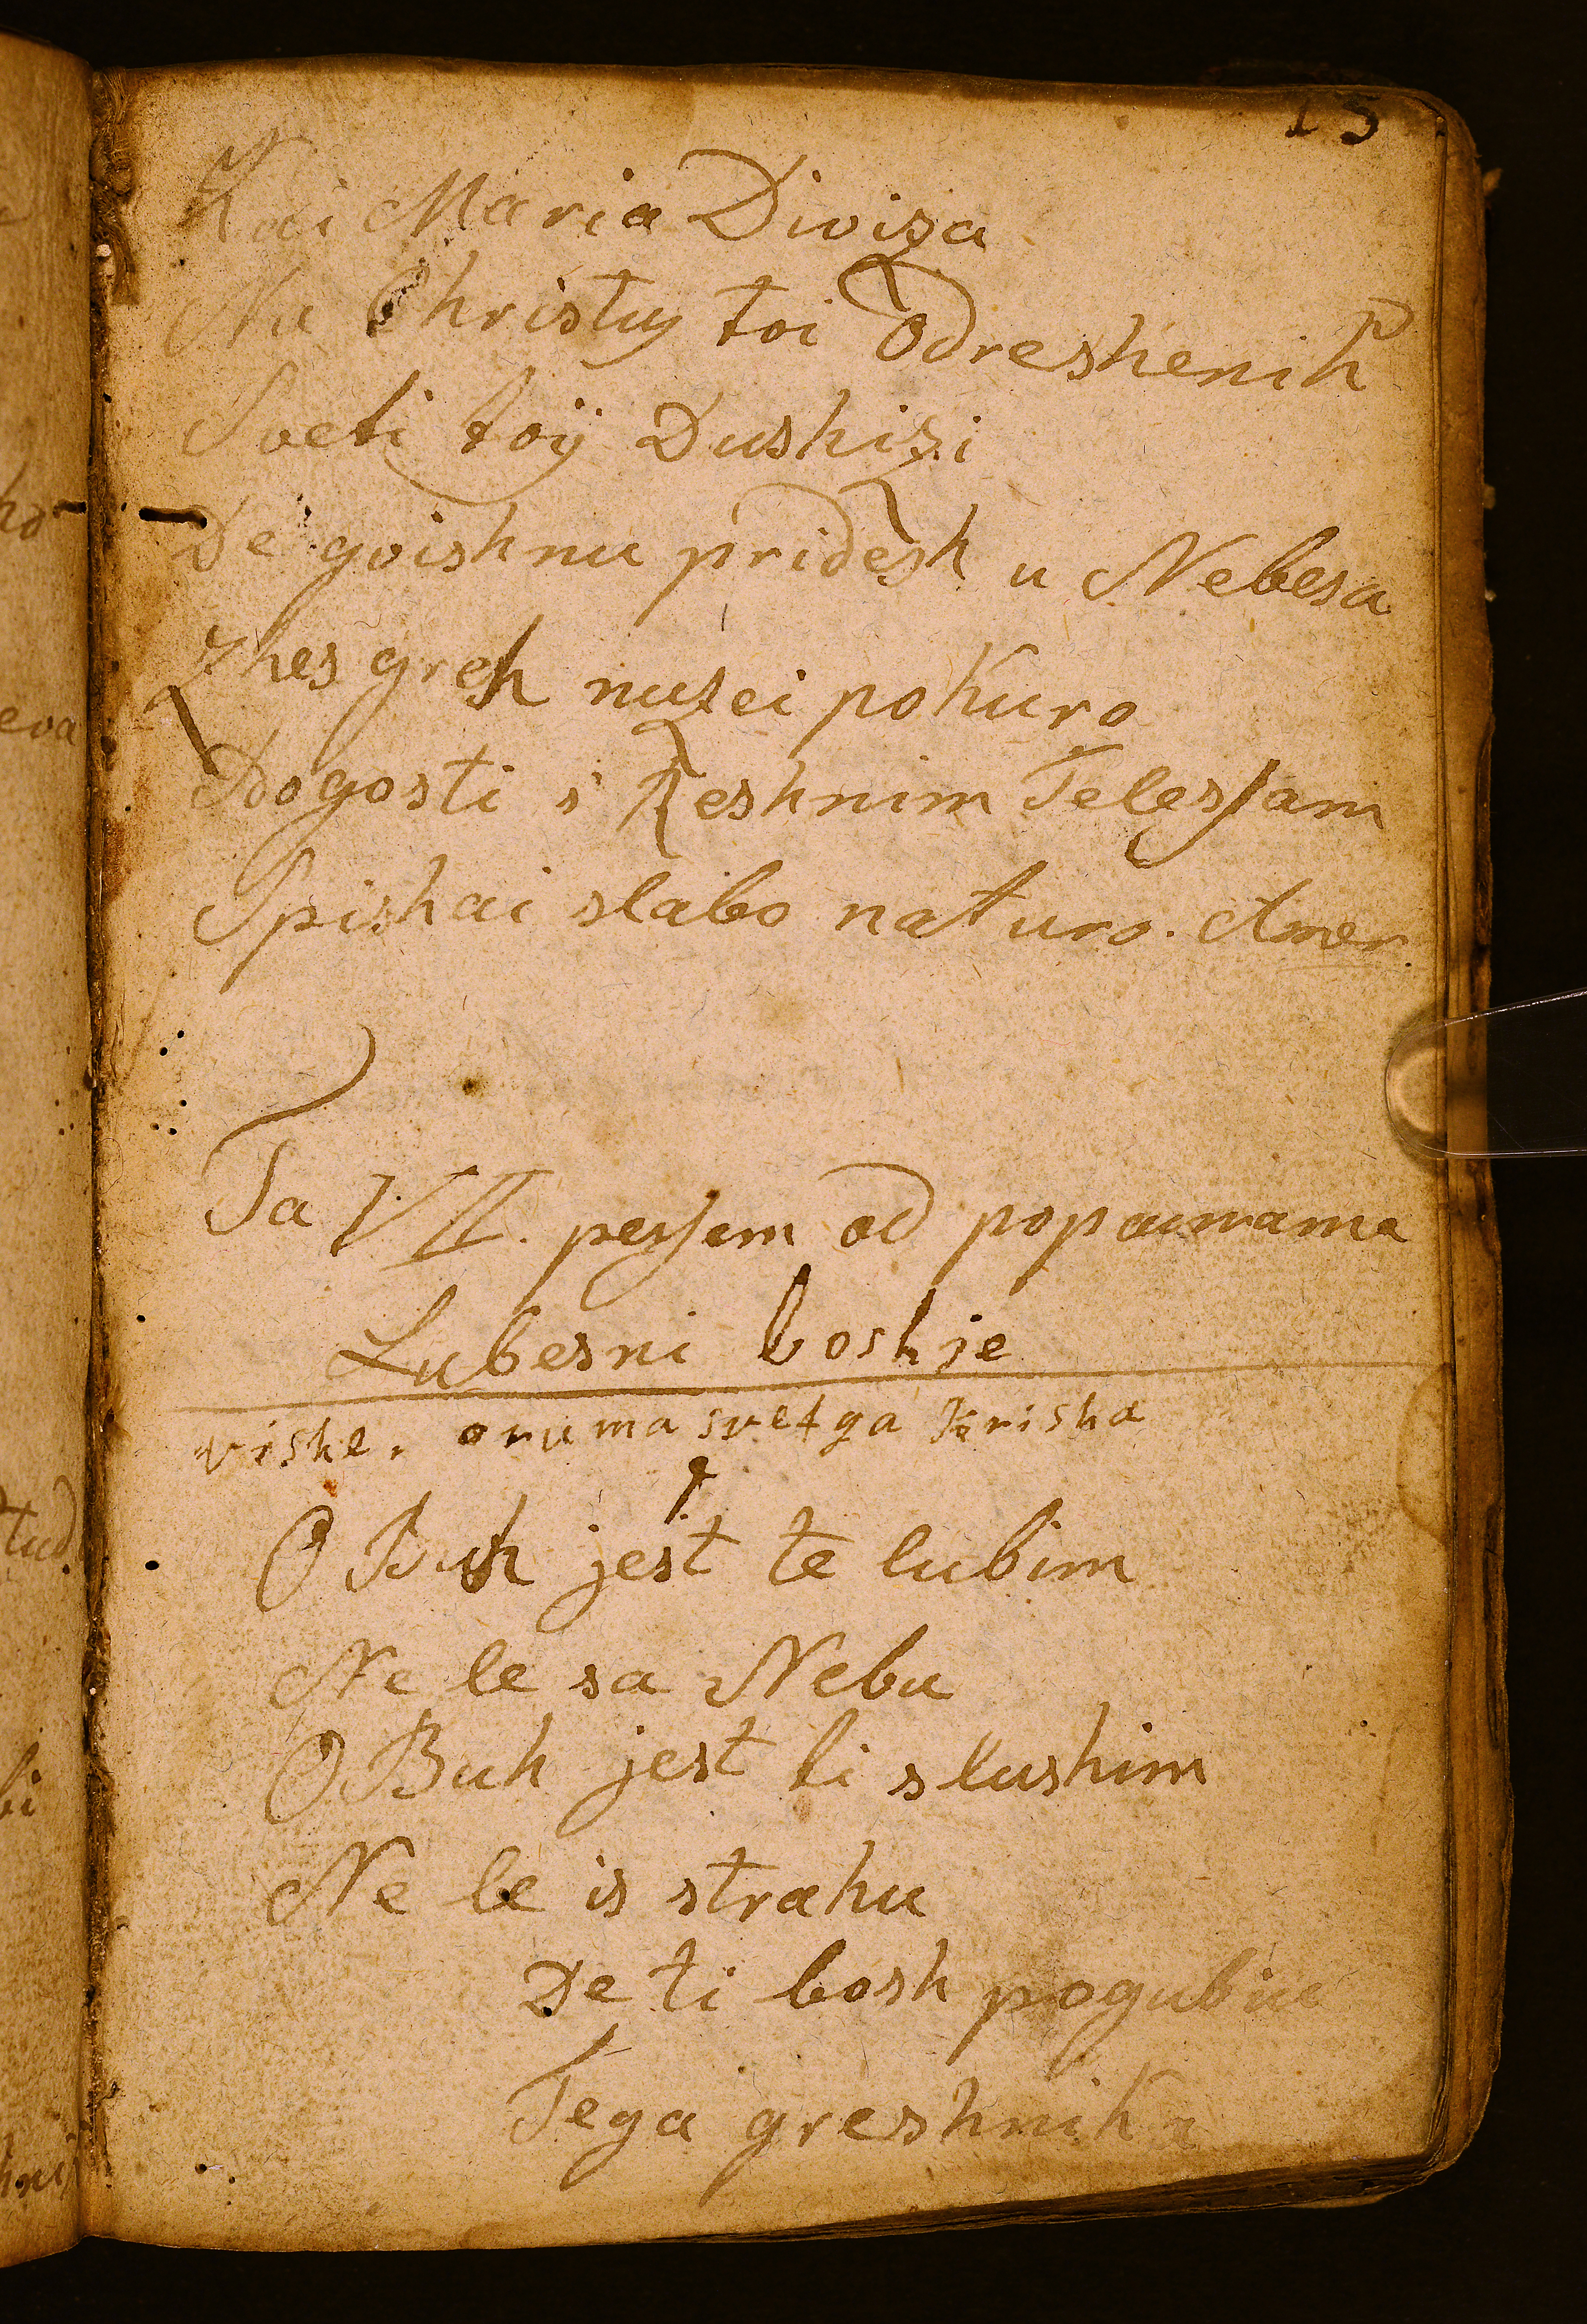 15
Kai Maria Diviza
Nu Christus toi Odreshenik
Sveti toÿ Dushizi
De gvishnu pridesh u Nebesa
Zhes greh nuzei pokuro
Bogosti s' Reshnim Telesſam
Spishai slabo naturo. Amen
Ta VII. peisem od popounama
Lubesni boshje
vishe. onuma svetga Krisha
1.
O Buh jest te lubim
Ne le sa Nebu
O Buh jest ti slushim
Ne le is strahu
De ti bosh pogubiu
Tega greshnika